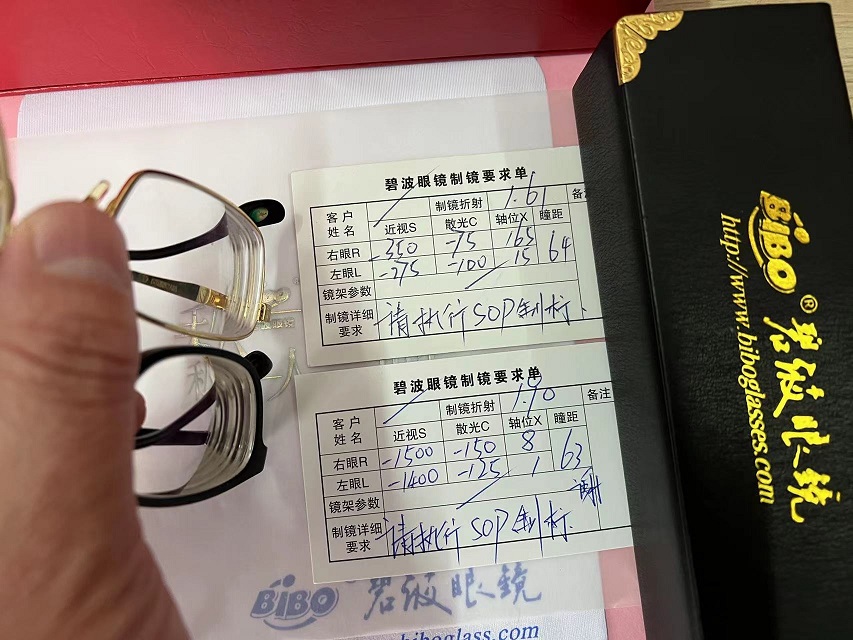 碧波眼镜制镜要求单
客户姓名 制镜折射 1.61 备
近视S 散光C 轴位X 瞳距
右眼R -350 -75 165 64
左眼L -275 -100 15
镜架参数
制镜详细要求 请执行SOP制标.
碧波眼镜制镜要求单
客户姓名 制镜折射 1.90 备注
近视S 散光C 轴位X 瞳距
右眼R -1500 -150 8 63
左眼L -1400 -125 1
镜架参数
制镜详细要求 请执行SOP制标.
BiBO 碧波眼镜
biboglass.com
BiBO® 碧波眼镜
http://www.biboglasses.com